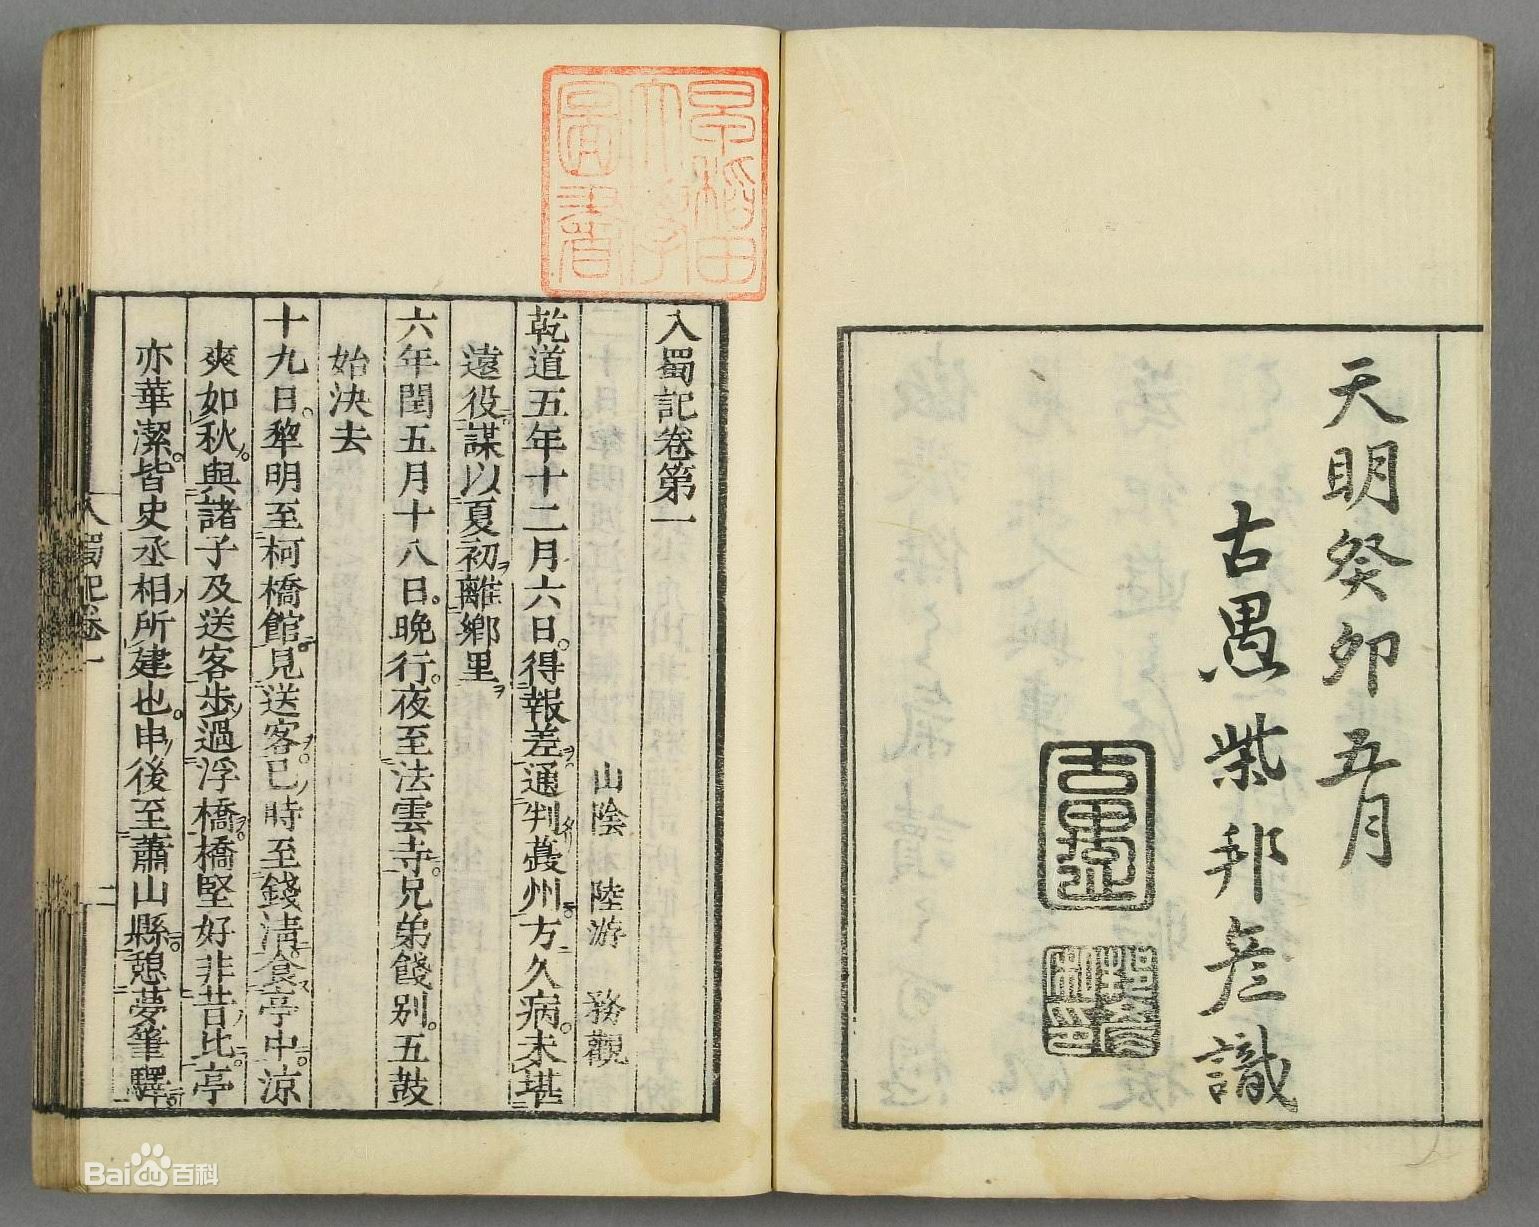 天明癸卯五月
古愚柴邦彦識
早稲田
大學
圖書
入蜀記卷第一
山陰 陸游 務觀
乾道五年十二月六日。得報差通判夔州方久病。未堪
遠役。謀以夏初離鄉里
六年閏五月十八日。晚行。夜至法雲寺。兄弟餞別。五鼓
始決去
十九日。犂明至柯橋館。見送客。巳時至錢清。食亭中。涼
爽如秋。與諸子及送客步過浮橋。橋堅好非昔比。亭
亦華潔。皆史丞相所建也。申後至蕭山縣。憩夢筆驛。
入蜀記卷一
二
Baidu百科